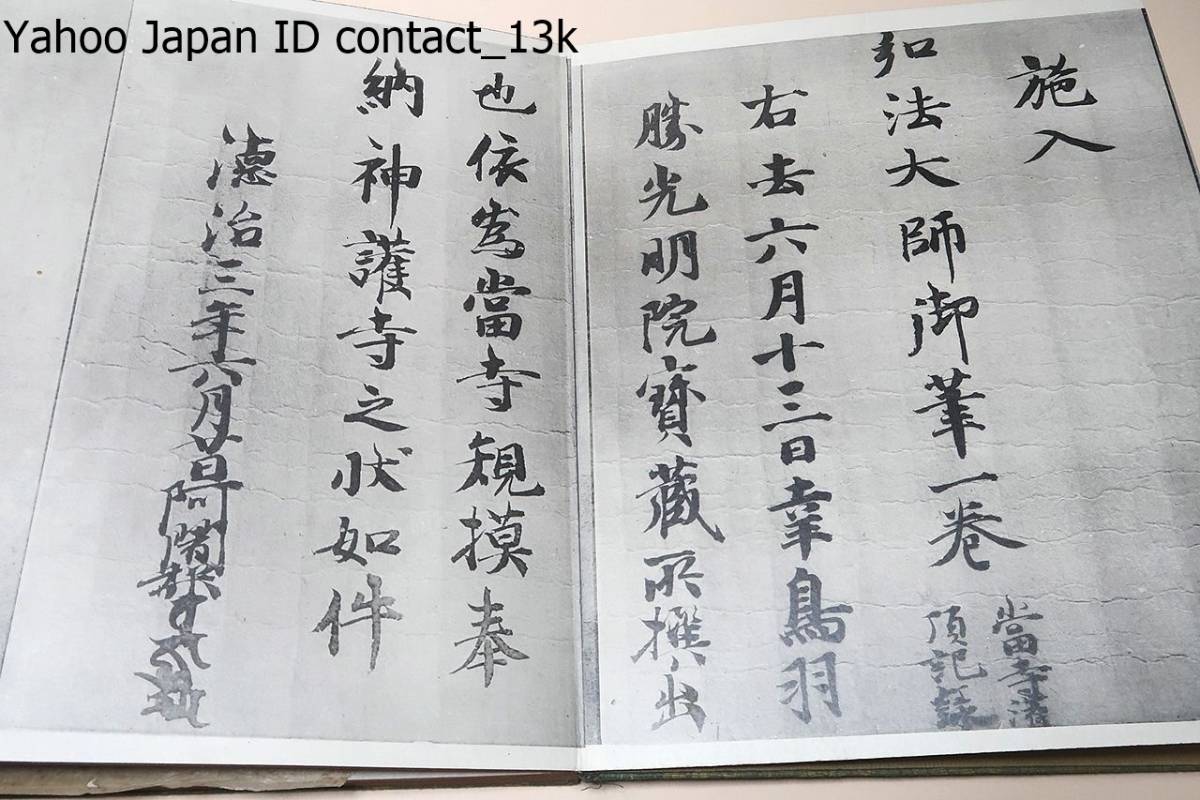 Yahoo Japan ID contact_13k
施入
弘法大師御筆一巻 當寺灌
頂記録
右去六月十三日幸鳥羽
勝光明院寶蔵所撰出
也依為當寺規摸奉
納神護寺之状如件
徳治三年六月廿日